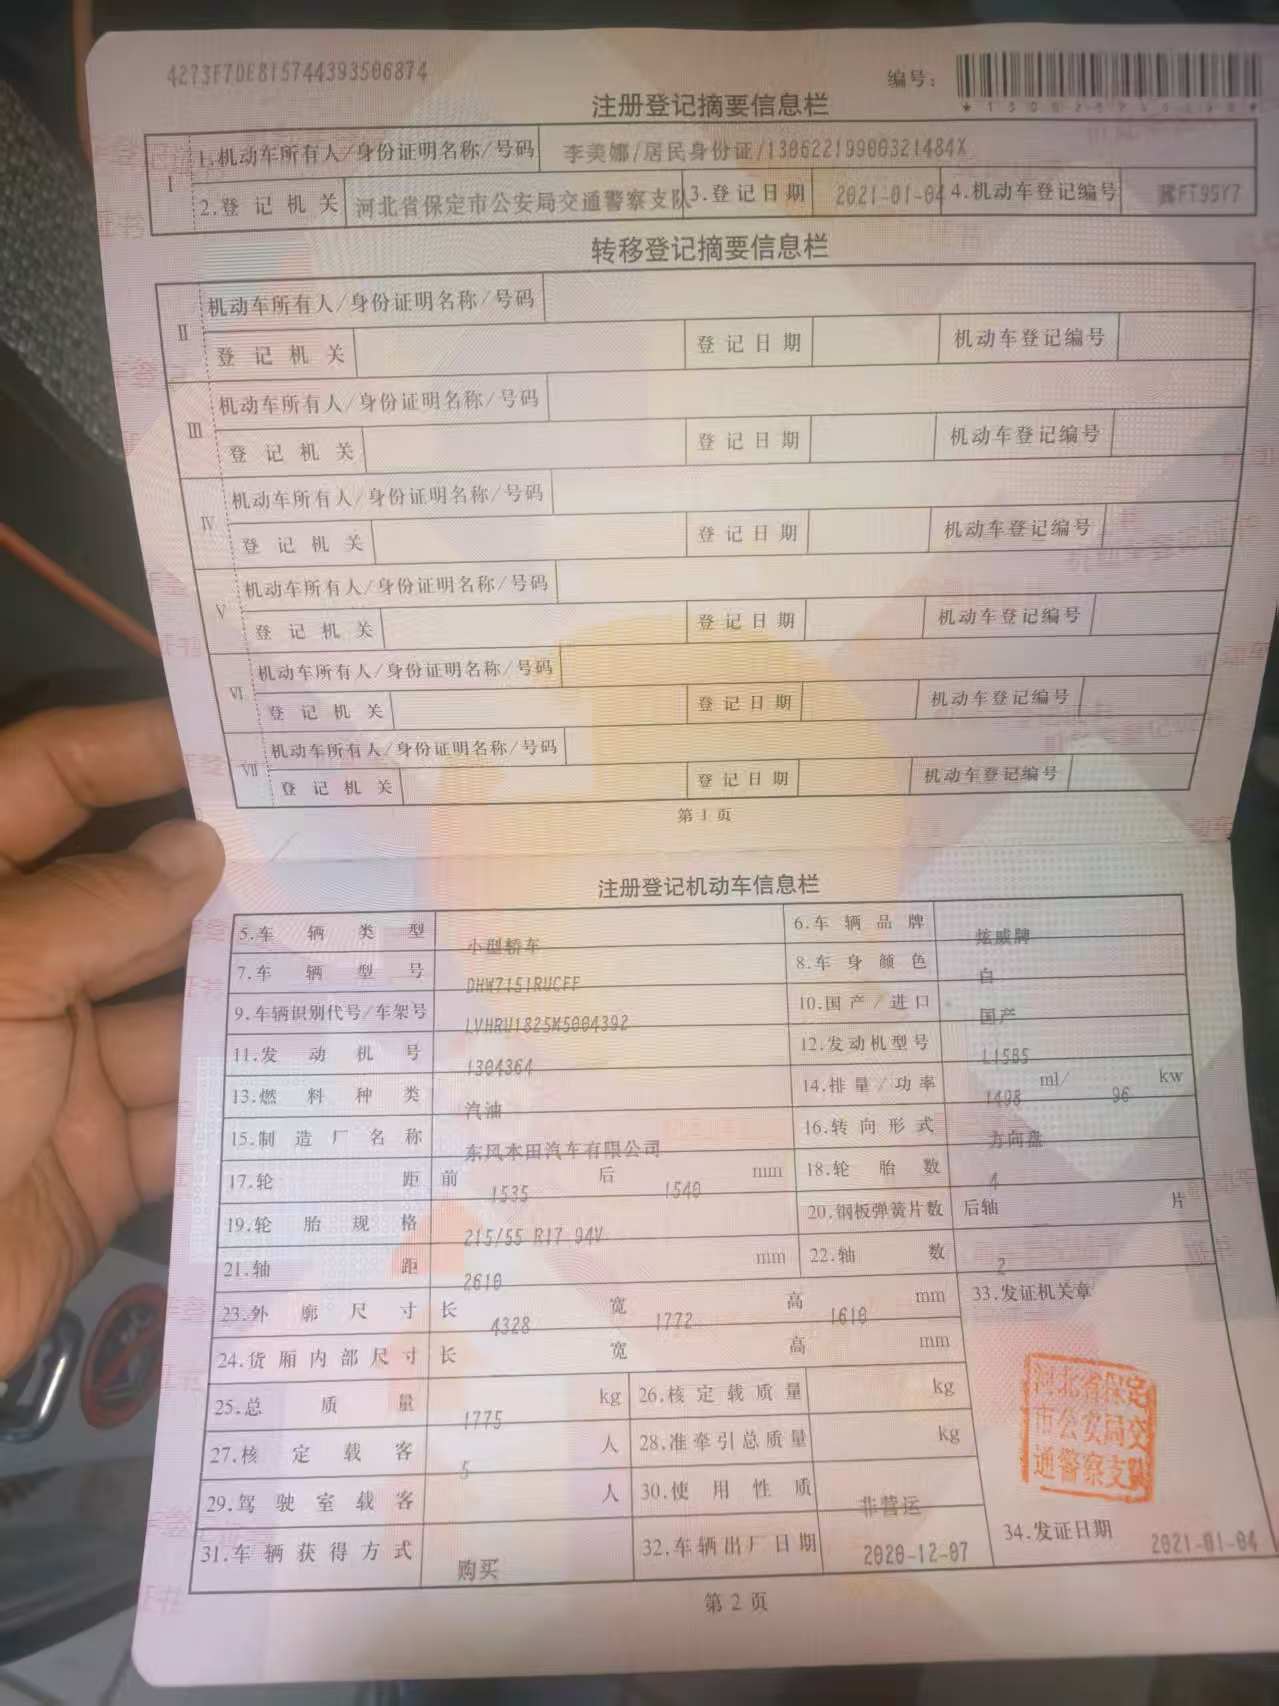 4273F7DE815744393506874
编号：
注册登记摘要信息栏
I
1.机动车所有人/身份证明名称/号码 李美娜/居民身份证/13062219900321484X
2.登记机关 河北省保定市公安局交通警察支队 3.登记日期 2021-01-04 4.机动车登记编号 冀FT95Y7
转移登记摘要信息栏
II 机动车所有人/身份证明名称/号码
登记机关 登记日期 机动车登记编号
III 机动车所有人/身份证明名称/号码
登记机关 登记日期 机动车登记编号
IV 机动车所有人/身份证明名称/号码
登记机关 登记日期 机动车登记编号
V 机动车所有人/身份证明名称/号码
登记机关 登记日期 机动车登记编号
VI 机动车所有人/身份证明名称/号码
登记机关 登记日期 机动车登记编号
VII 机动车所有人/身份证明名称/号码
登记机关 登记日期 机动车登记编号
第 1 页
注册登记机动车信息栏
5.车辆类型 小型轿车 6.车辆品牌 炫威牌
7.车辆型号 DHW7151RUCFF 8.车身颜色 白
9.车辆识别代号/车架号 LVHRU1825M5004392 10.国产/进口 国产
11.发动机号 1304364 12.发动机型号 L15B5
13.燃料种类 汽油 14.排量/功率 1498 ml/ 96 kw
15.制造厂名称 东风本田汽车有限公司 16.转向形式 方向盘
17.轮距 前 1535 后 1540 mm 18.轮胎数 4
19.轮胎规格 215/55 R17 94V 20.钢板弹簧片数 后轴 片
21.轴距 2610 mm 22.轴数 2
23.外廓尺寸 长 4328 宽 1772 高 1610 mm 33.发证机关章
24.货厢内部尺寸 长 宽 高 mm
25.总质量 1775 kg 26.核定载质量 kg
27.核定载客 5 人 28.准牵引总质量 kg
29.驾驶室载客 人 30.使用性质 非营运
31.车辆获得方式 购买 32.车辆出厂日期 2020-12-07 34.发证日期 2021-01-04
河北省保定
市公安局交
通警察支队
第 2 页